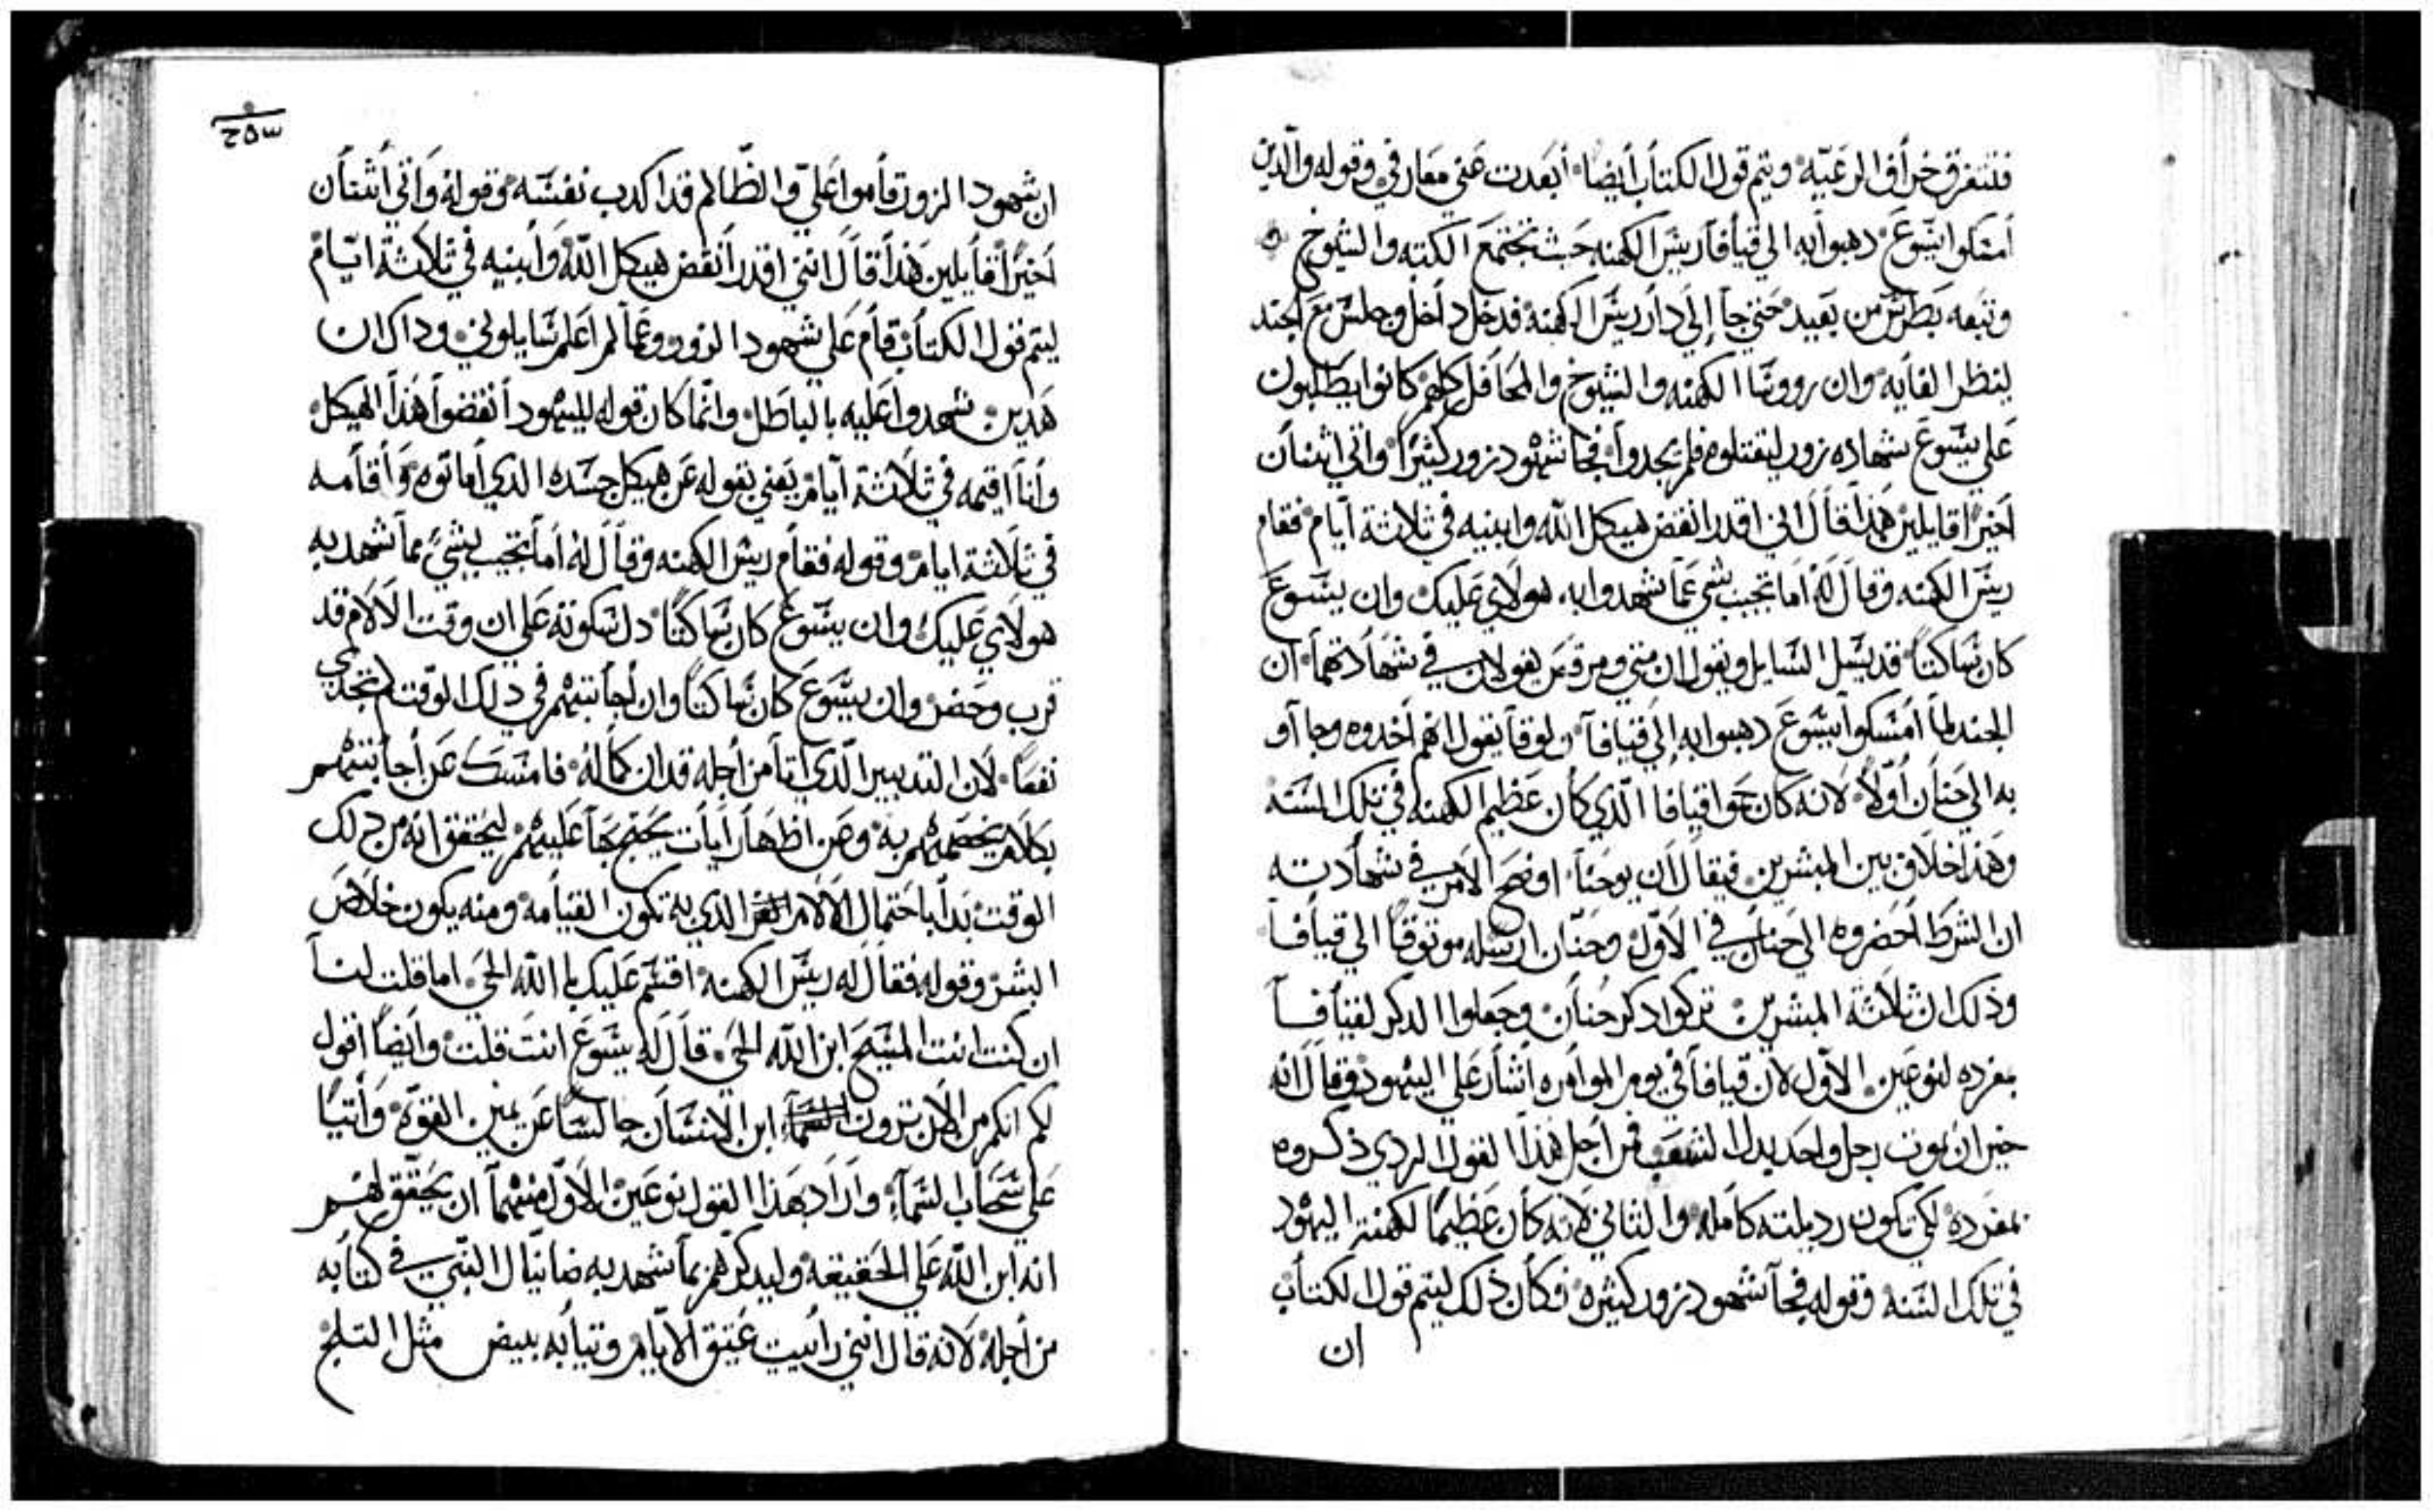 فتتفرق خراف الرعيه ويتم قول الكتاب ايضا أبعدت عني معارفي وقوله والدين
أمسكوا يسوع دهبوا به الي قيافا ريس الكهنه حيث تجتمع الكتبه والشيوخ
وتبعه بطرس من بعيد حتي جا إلي دار ريس الكهنه فدخل داخل وجلس مع الجند
لينظر الغايه وان رووسا الكهنه والشيوخ والمحافل كلهم كانوا يطلبون
علي يسوع شهاده زور ليقتلوه فلم يجدوا فجا شهود زور كثيرا واتي اثنان
أخيرا قايلين هذا قال اني اقدر انقض هيكل الله وابنيه في ثلاثة أيام فقام
ريس الكهنه وقال له اما تجيب بشي عما شهدوا به هولاي عليك وان يسوع
كان ساكتا قد يسل السايل ويقول ان متي ومرقس يقولان في شهادتهما ان
الجند لما أمسكوا يسوع دهبوا به إلي قيافا ولوقا يقول انهم أخدوه وجا آو
به الي حنان أولا لانه كان حموا قيافا الذي كان عظيم الكهنه في تلك السنه
وهذا خلاف بين المبشرين فيقال ان يوحنا اوضح الامر في شهادته
ان الشرط أحضروه الي حنان في الاول وحنان ارسله موثوقا الي قيافا
وذلك ان ثلاثة المبشرين تركوا دكر حنان وجعلوا الدكر لقيافا
بمفرده لنوعين الاول لان قيافا في يوم الموامره أشار علي اليهود وقال انه
خير ان يموت رجل واحد بدل الشعب فمن أجل هذا القول الردي ذكروه
بمفرده لكي تكون رديلته كامله والثاني لانه كان عظيما لكهنة اليهود
في تلك السنه وقوله فجا شهود زور كثيره فكان ذلك ليتم قول الكتاب
ان
٢٥٣
ان شهود الزور قاموا علي والظالم قد اكدب نفسه وقوله واتي أثنان
أخيرا قايلين هذا قال انني اقدر أنقض هيكل الله وأبنيه في ثلاثة ايام
ليتم قول الكتاب قام علي شهود الزور وعما لم اعلم سايلوني وداك ان
هدين شهدوا عليه بالباطل وانما كان قوله لليهود أنقضوا هذا الهيكل
وأنا اقيمه في ثلاثة أيام يعني بقوله عن هيكل جسده الدي أماتوه وأقامه
في ثلاثة ايام وقوله فقام ريس الكهنه وقال له أما تجيب بشيء مما شهد به
هولاي عليك وان يسوع كان ساكتا دل سكوته علي ان وقت الالام قد
قرب وحضر وان يسوع كان ساكتا وان أجابتهم في ذلك الوقت لم تجدي
نفعا لان التدبير الدي اتا من أجله قد ان كماله فامسك عن أجابتهم
بكلام يخصمهم به وعن اظهار أيات يحتج بها عليهم ليحقق انه من ذلك
الوقت بدا باحتمال الالام الدي به تكون القيامه ومنه يكون خلاص
البشر وقوله فقال له ريس الكهنه اقسم عليك بالله الحي اما قلت لنا
ان كنت انت المسيح ابن الله الحي قال له يسوع انت قلت وأيضا أقول
لكم انكم من الان ترون ابن الانسان جالسا عن يمين القوة وأتيا
علي سحاب السماء واراد بهذا القول نوعين الاول منهما ان يحقق لهم
انه ابن الله علي الحقيقه وليدكرهم بما شهد به ضانيال النبي في كتابه
من أجله لانه قال انني رأيت عتيق الايام وتيابه بيض مثل التلج